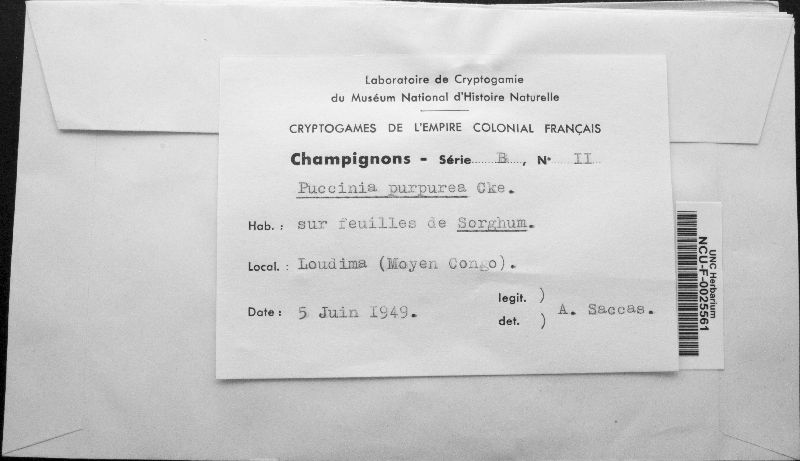 Laboratoire de Cryptogamie
du Muséum National d'Histoire Naturelle
CRYPTOGAMES DE L'EMPIRE COLONIAL FRANÇAIS
Champignons - Série B, N° II
Puccinia purpurea Cke.
Hab. : sur feuilles de Sorghum.
Local. : Loudima (Moyen Congo).
Date : 5 Juin I949.
legit. )
det. ) A. Saccas.
UNC Herbarium
NCU-F-0025561